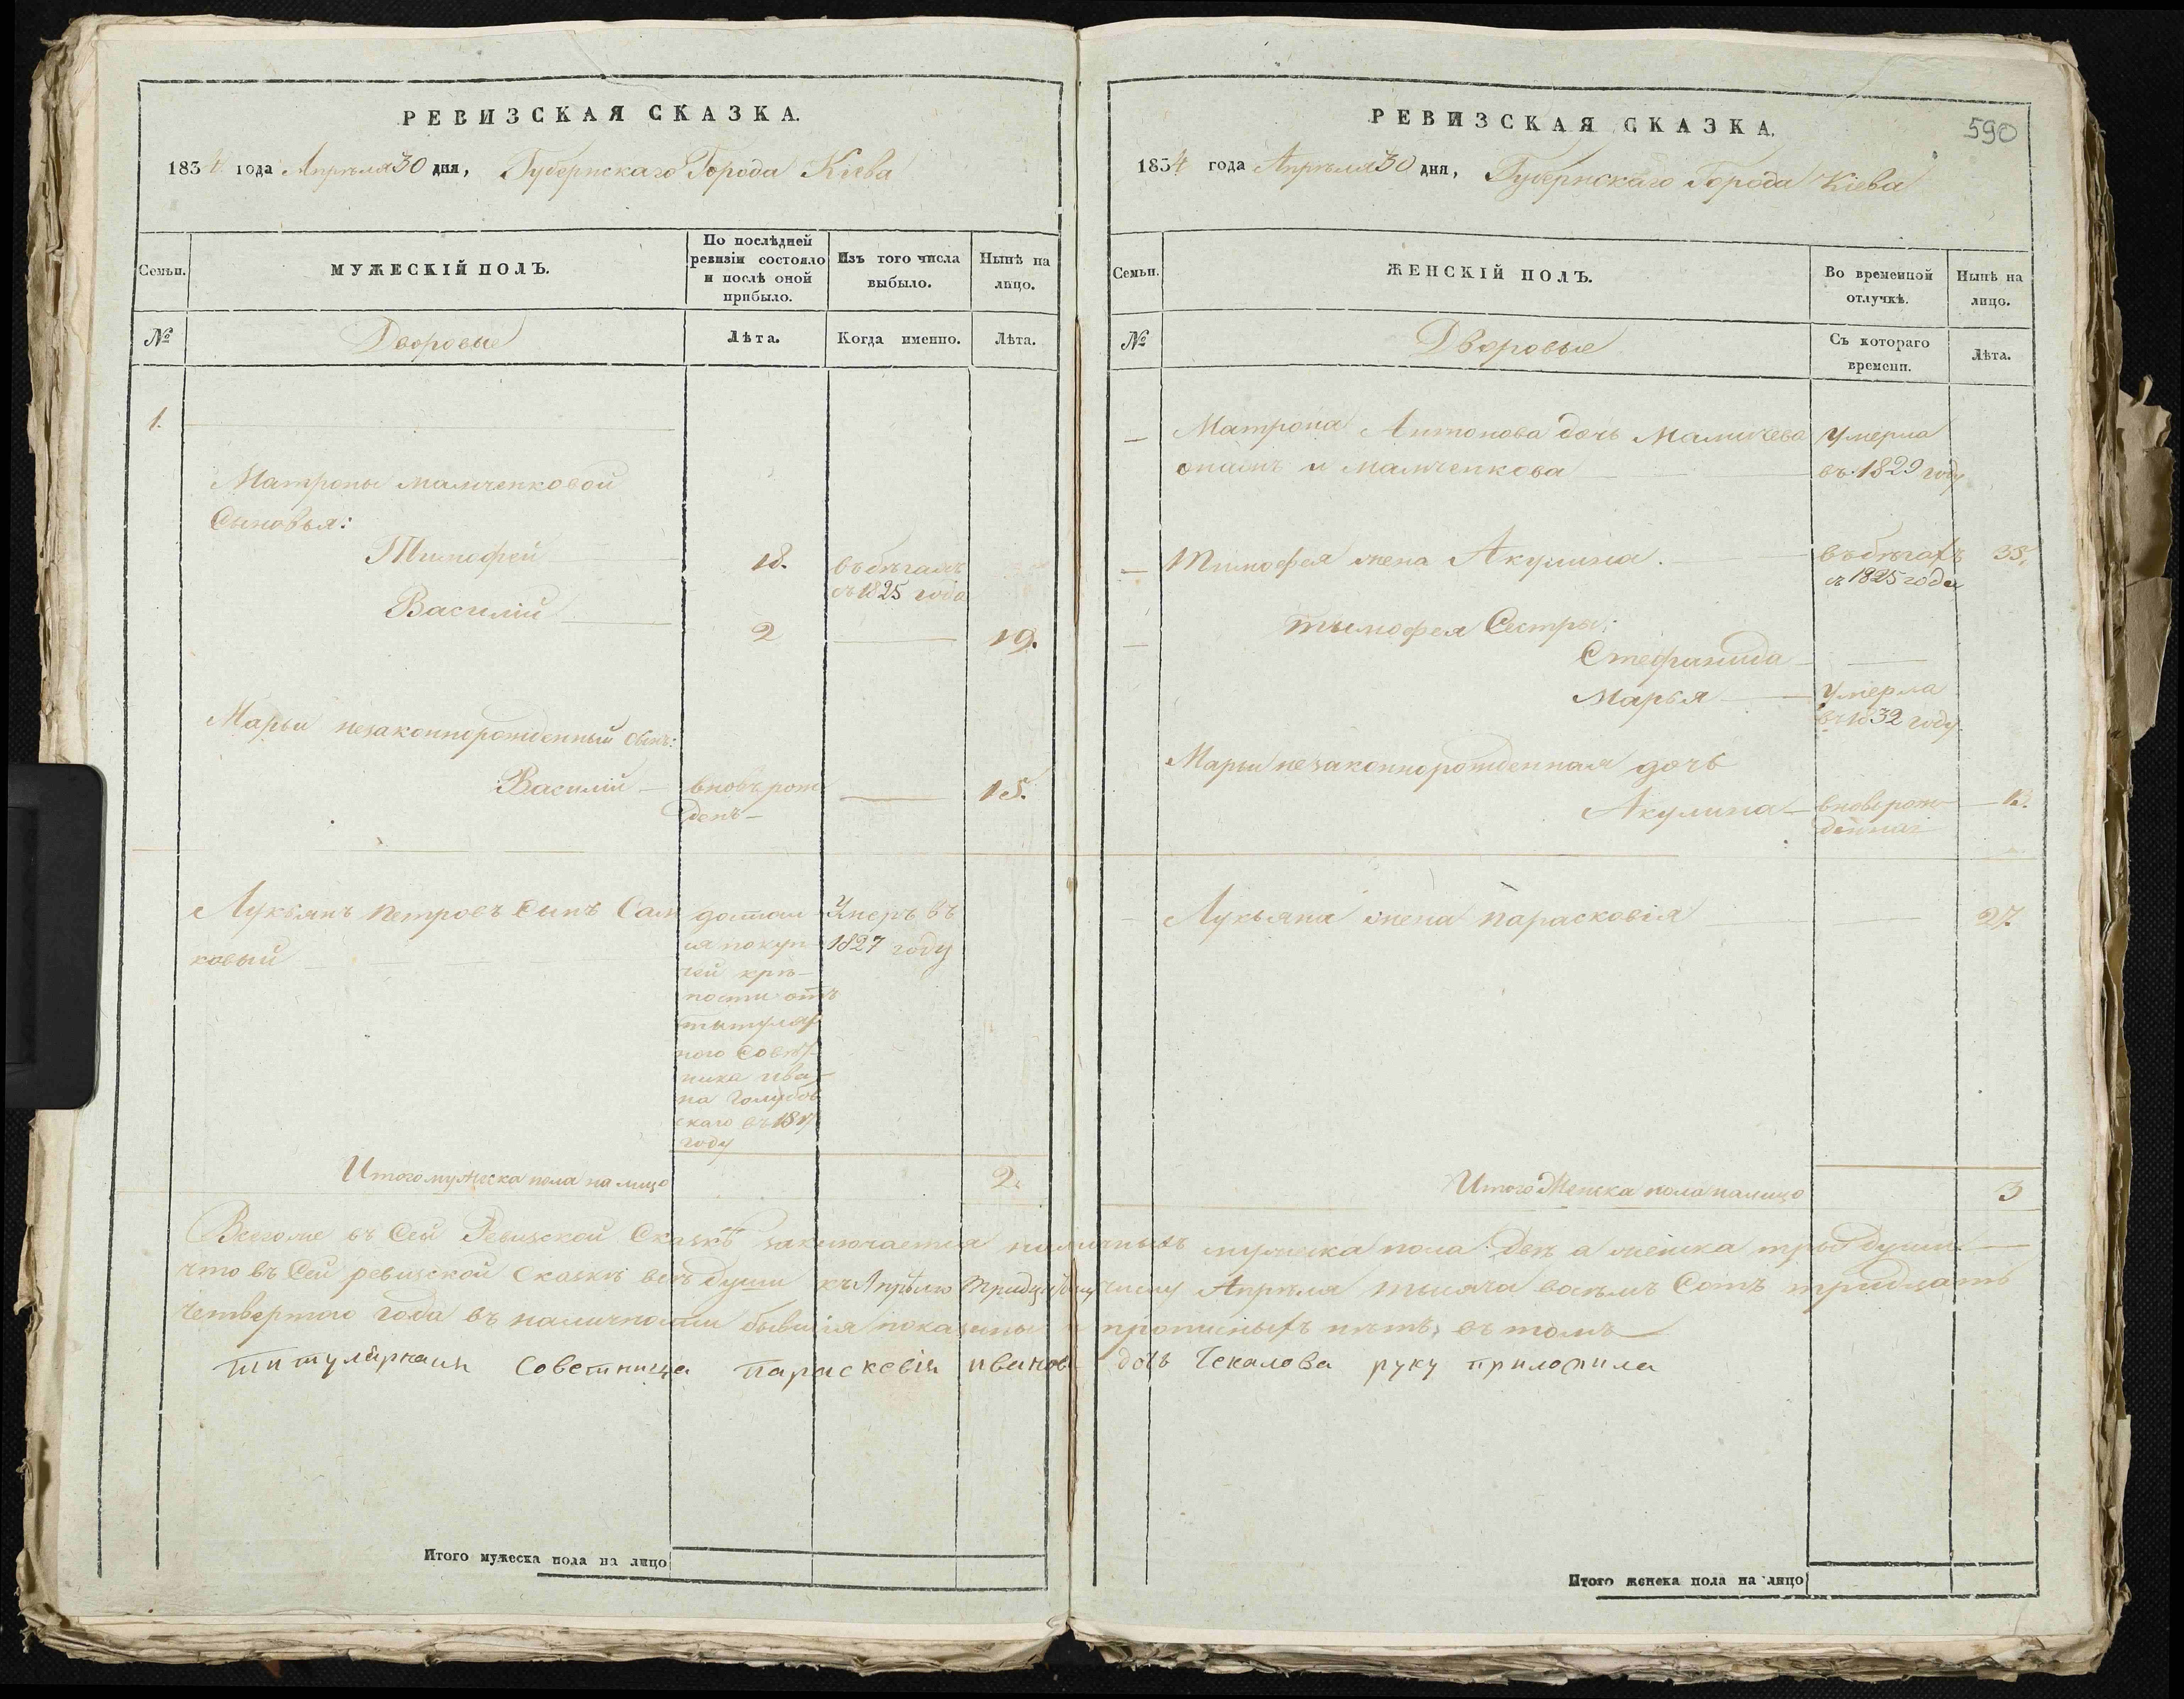 РЕВИЗСКАЯ СКАЗКА.
1834 года Апрѣля 30 дня, Губернскаго Города Кіева
Семьи.
МУЖЕСКІЙ ПОЛЪ.
По послѣдней
ревизіи состояло
и послѣ оной
прибыло.
Изъ того числа
выбыло.
Нынѣ на
лицо.
№
Дворовые
Лѣта.
Когда именно.
Лѣта.
1.
Матроны мамченковой
Сыновья:
Тимофей 18. въ бѣгахъ
съ 1825 года
Василій 2 19.
Марьи незаконнорожденный сынъ:
Василій вновь рож 15.
денъ
Лукьянъ петровъ сынъ Сам Умеръ въ
ковый 1827 году
достал
ся покуп
чей крѣ
пости отъ
титуляр
ного Совѣт
ника ива
на Голубов
скаго въ
году
Итого мужеска пола на лицо 2.
РЕВИЗСКАЯ СКАЗКА.
590
1834 года Апрѣля 30 дня, Губернскаго Города Кіева
Семьи.
ЖЕНСКІЙ ПОЛЪ.
Во временной
отлучкѣ.
Нынѣ на
лицо.
№
Дворовые
Съ котораго
времени.
Лѣта.
Матрона Антонова дочь Умерла
онажъ и мамченкова въ 1829 году
Тимофея жена Акулина. въ бѣгахъ 35.
съ 1825 года
тимофея Сестры:
Стефанида
Марья Умерла
въ 1832 году
Марьи незаконнорожденная дочь
Акулина вновь рож 13.
денная
Лукьяна жена парасковія 27.
Итого Женска пола налицо 3
Всегоже въ Сей Ревизской Сказкѣ заключается наличныхъ мужеска пола двѣ а женска три души
что въ Сей ревизской сказкѣ всѣ души къ тридцатому числу Апрѣля тысяча восемъ Сотъ тридцать
четвертого года въ наличности бывшія показаны и прописныхъ нѣтъ, въ томъ
титулярная Советница параскевія иванова дочь Чекалова руку приложила
Итого мужеска пола на лицо
Итого женска пола на лицо